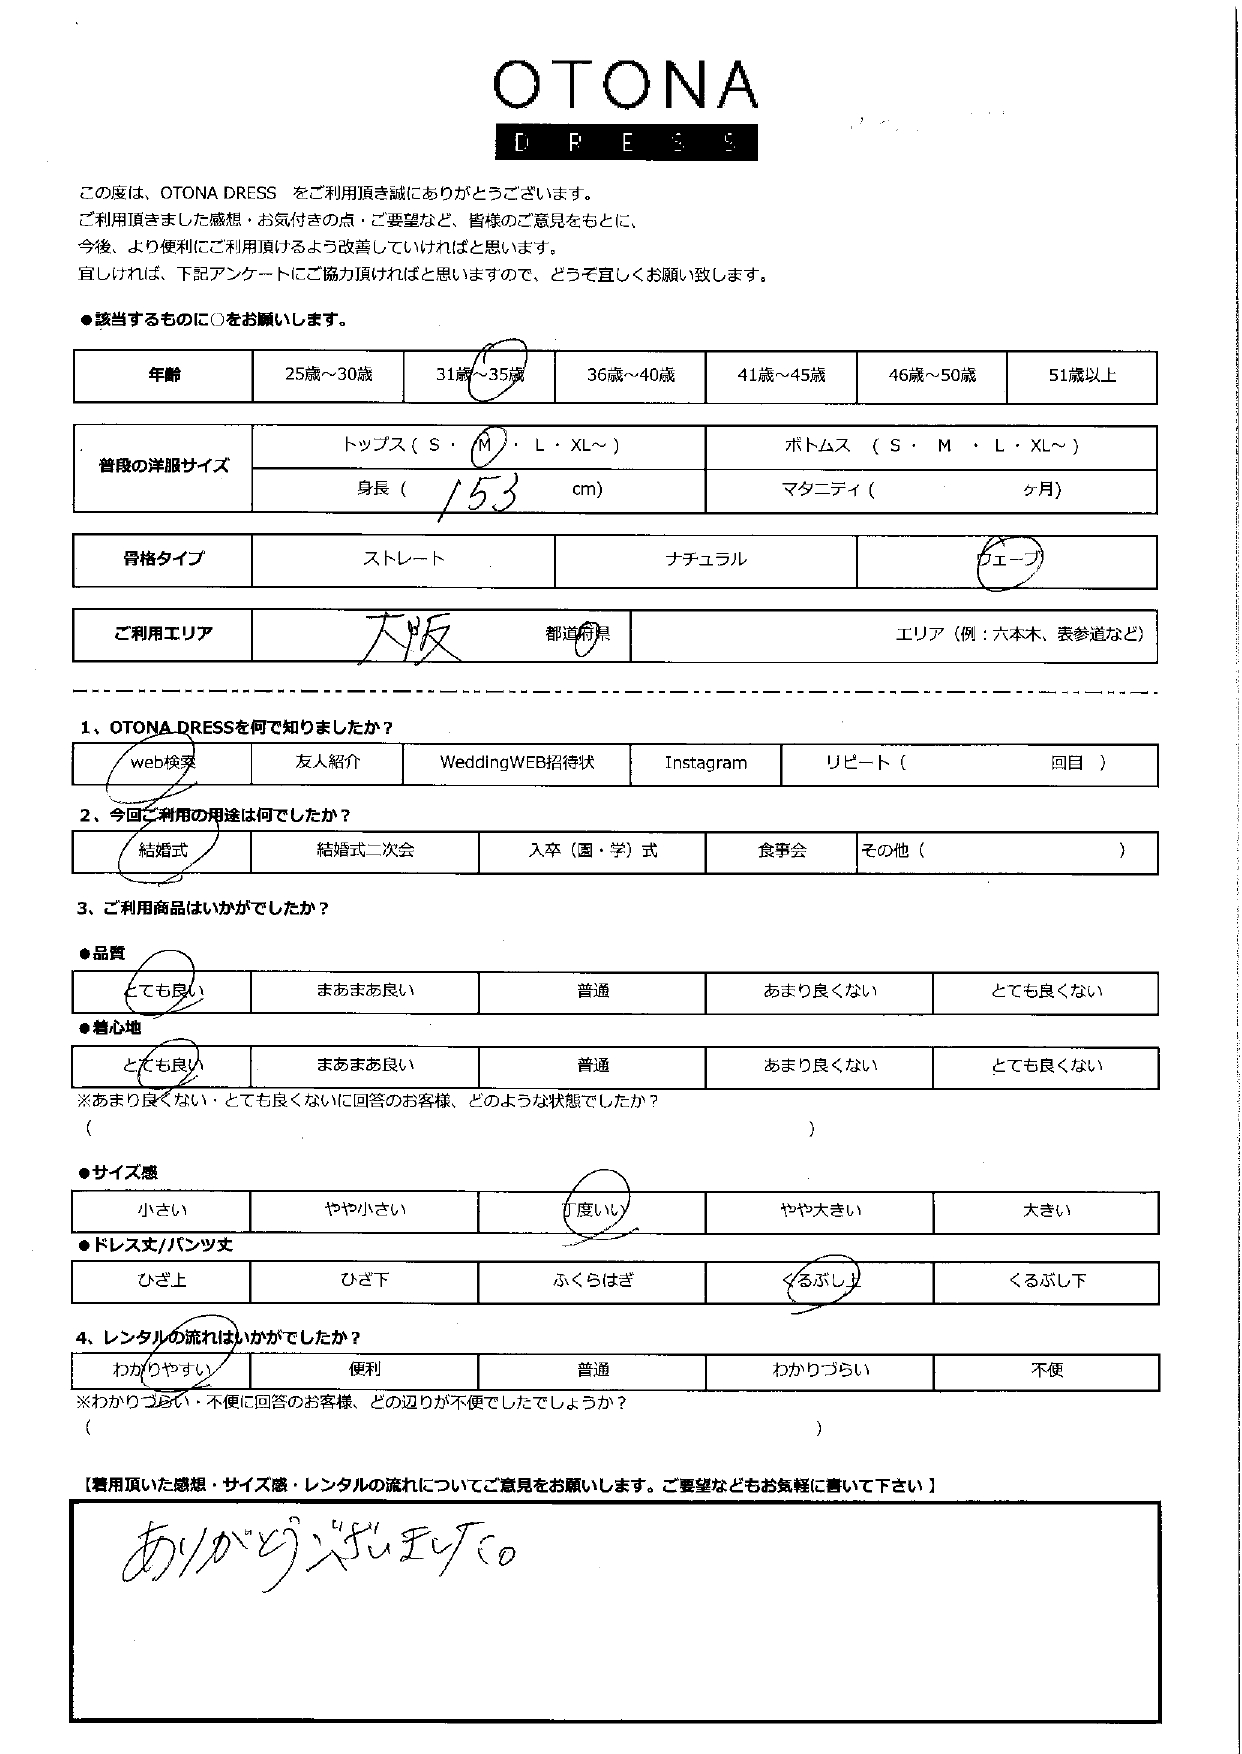 OTONA
DRESS
この度は、OTONA DRESS をご利用頂き誠にありがとうございます。
ご利用頂きました感想・お気付きの点・ご要望など、皆様のご意見をもとに、
今後、より便利にご利用頂けるよう改善していければと思います。
宜しければ、下記アンケートにご協力頂ければと思いますので、どうぞ宜しくお願い致します。
●該当するものに○をお願いします。
年齢 25歳～30歳 31歳～35歳 36歳～40歳 41歳～45歳 46歳～50歳 51歳以上
普段の洋服サイズ トップス ( S ・ M ・ L ・ XL～ ) ボトムス ( S ・ M ・ L ・ XL～ )
身長 ( 153 cm) マタニティ ( ヶ月)
骨格タイプ ストレート ナチュラル ウェーブ
ご利用エリア 大阪 都道府県 エリア（例：六本木、表参道など）
1、OTONA DRESSを何で知りましたか？
web検索 友人紹介 WeddingWEB招待状 Instagram リピート（ 回目 ）
2、今回ご利用の用途は何でしたか？
結婚式 結婚式二次会 入卒（園・学）式 食事会 その他（ ）
3、ご利用商品はいかがでしたか？
●品質
とても良い まあまあ良い 普通 あまり良くない とても良くない
●着心地
とても良い まあまあ良い 普通 あまり良くない とても良くない
※あまり良くない・とても良くないに回答のお客様、どのような状態でしたか？
( )
●サイズ感
小さい やや小さい 丁度いい やや大きい 大きい
●ドレス丈/パンツ丈
ひざ上 ひざ下 ふくらはぎ くるぶし上 くるぶし下
4、レンタルの流れはいかがでしたか？
わかりやすい 便利 普通 わかりづらい 不便
※わかりづらい・不便に回答のお客様、どの辺りが不便でしたでしょうか？
( )
【着用頂いた感想・サイズ感・レンタルの流れについてご意見をお願いします。ご要望などもお気軽に書いて下さい】
ありがとうございました。